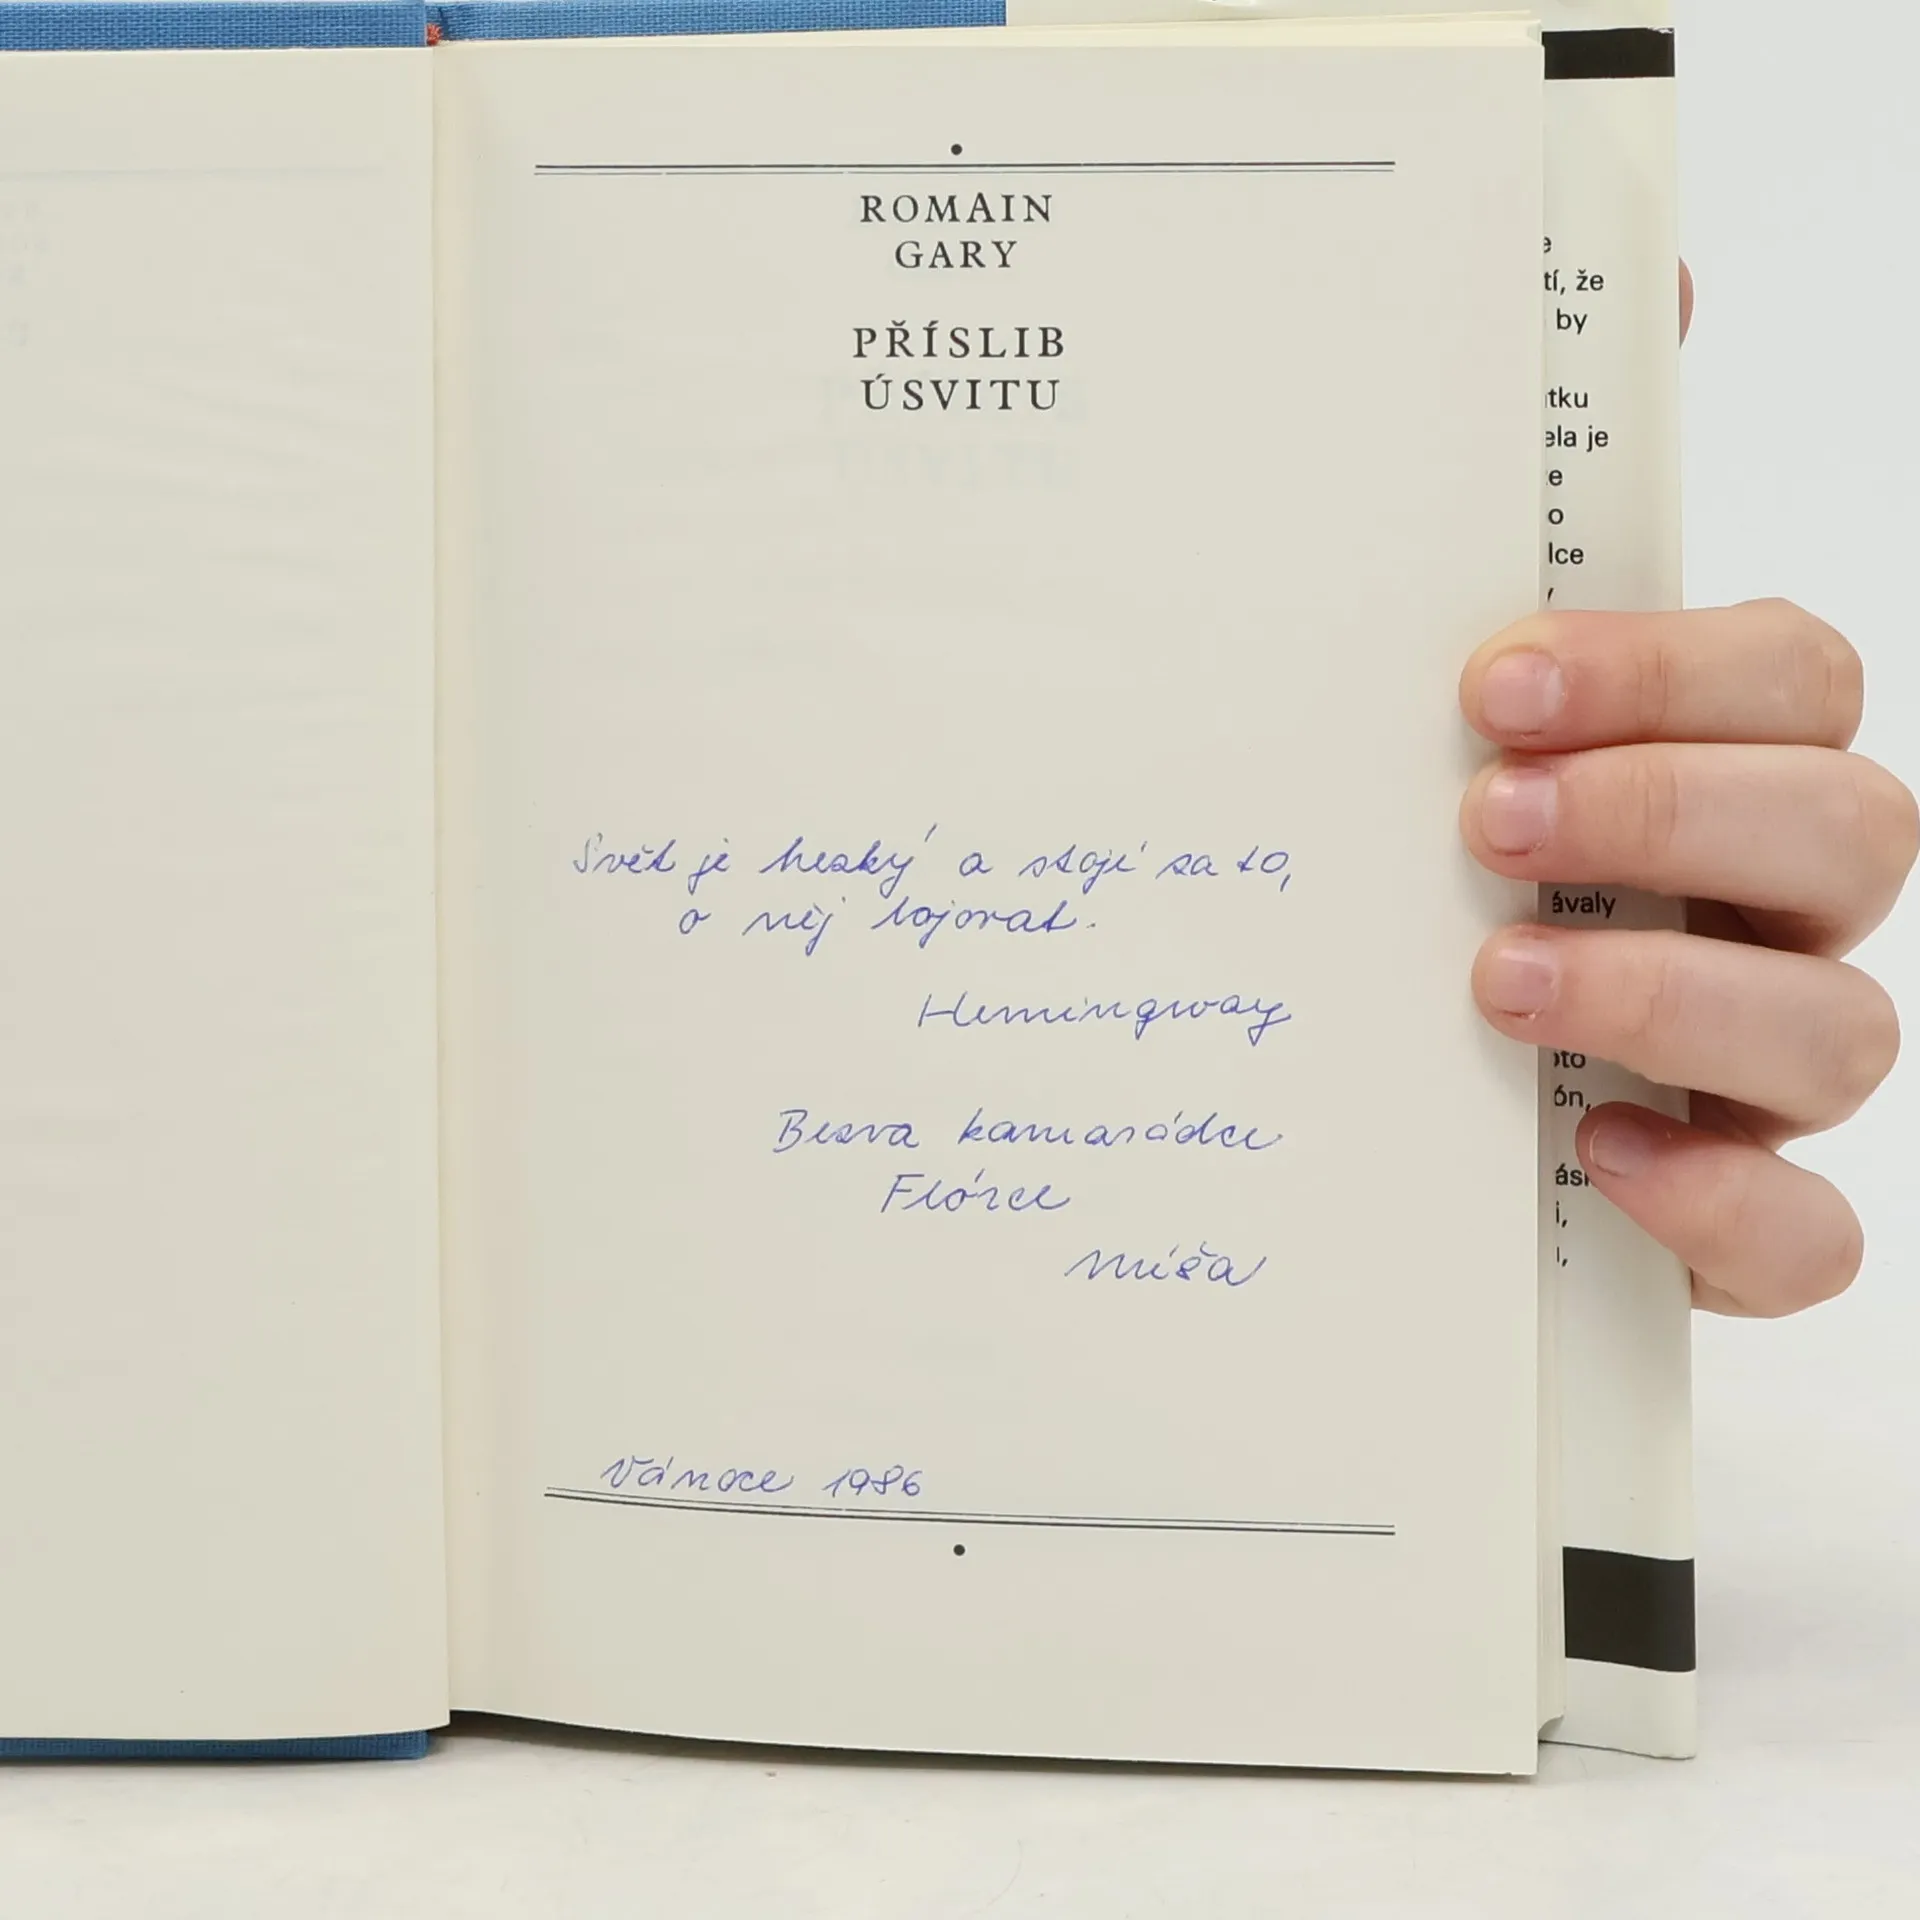 ROMAIN
GARY
PŘÍSLIB
ÚSVITU
Svět je hezký a stojí za to,
o něj bojovat.
Hemingway
Bezva kamarádce
Flórce
Míša
Vánoce 1986
tí, že
by
ela je